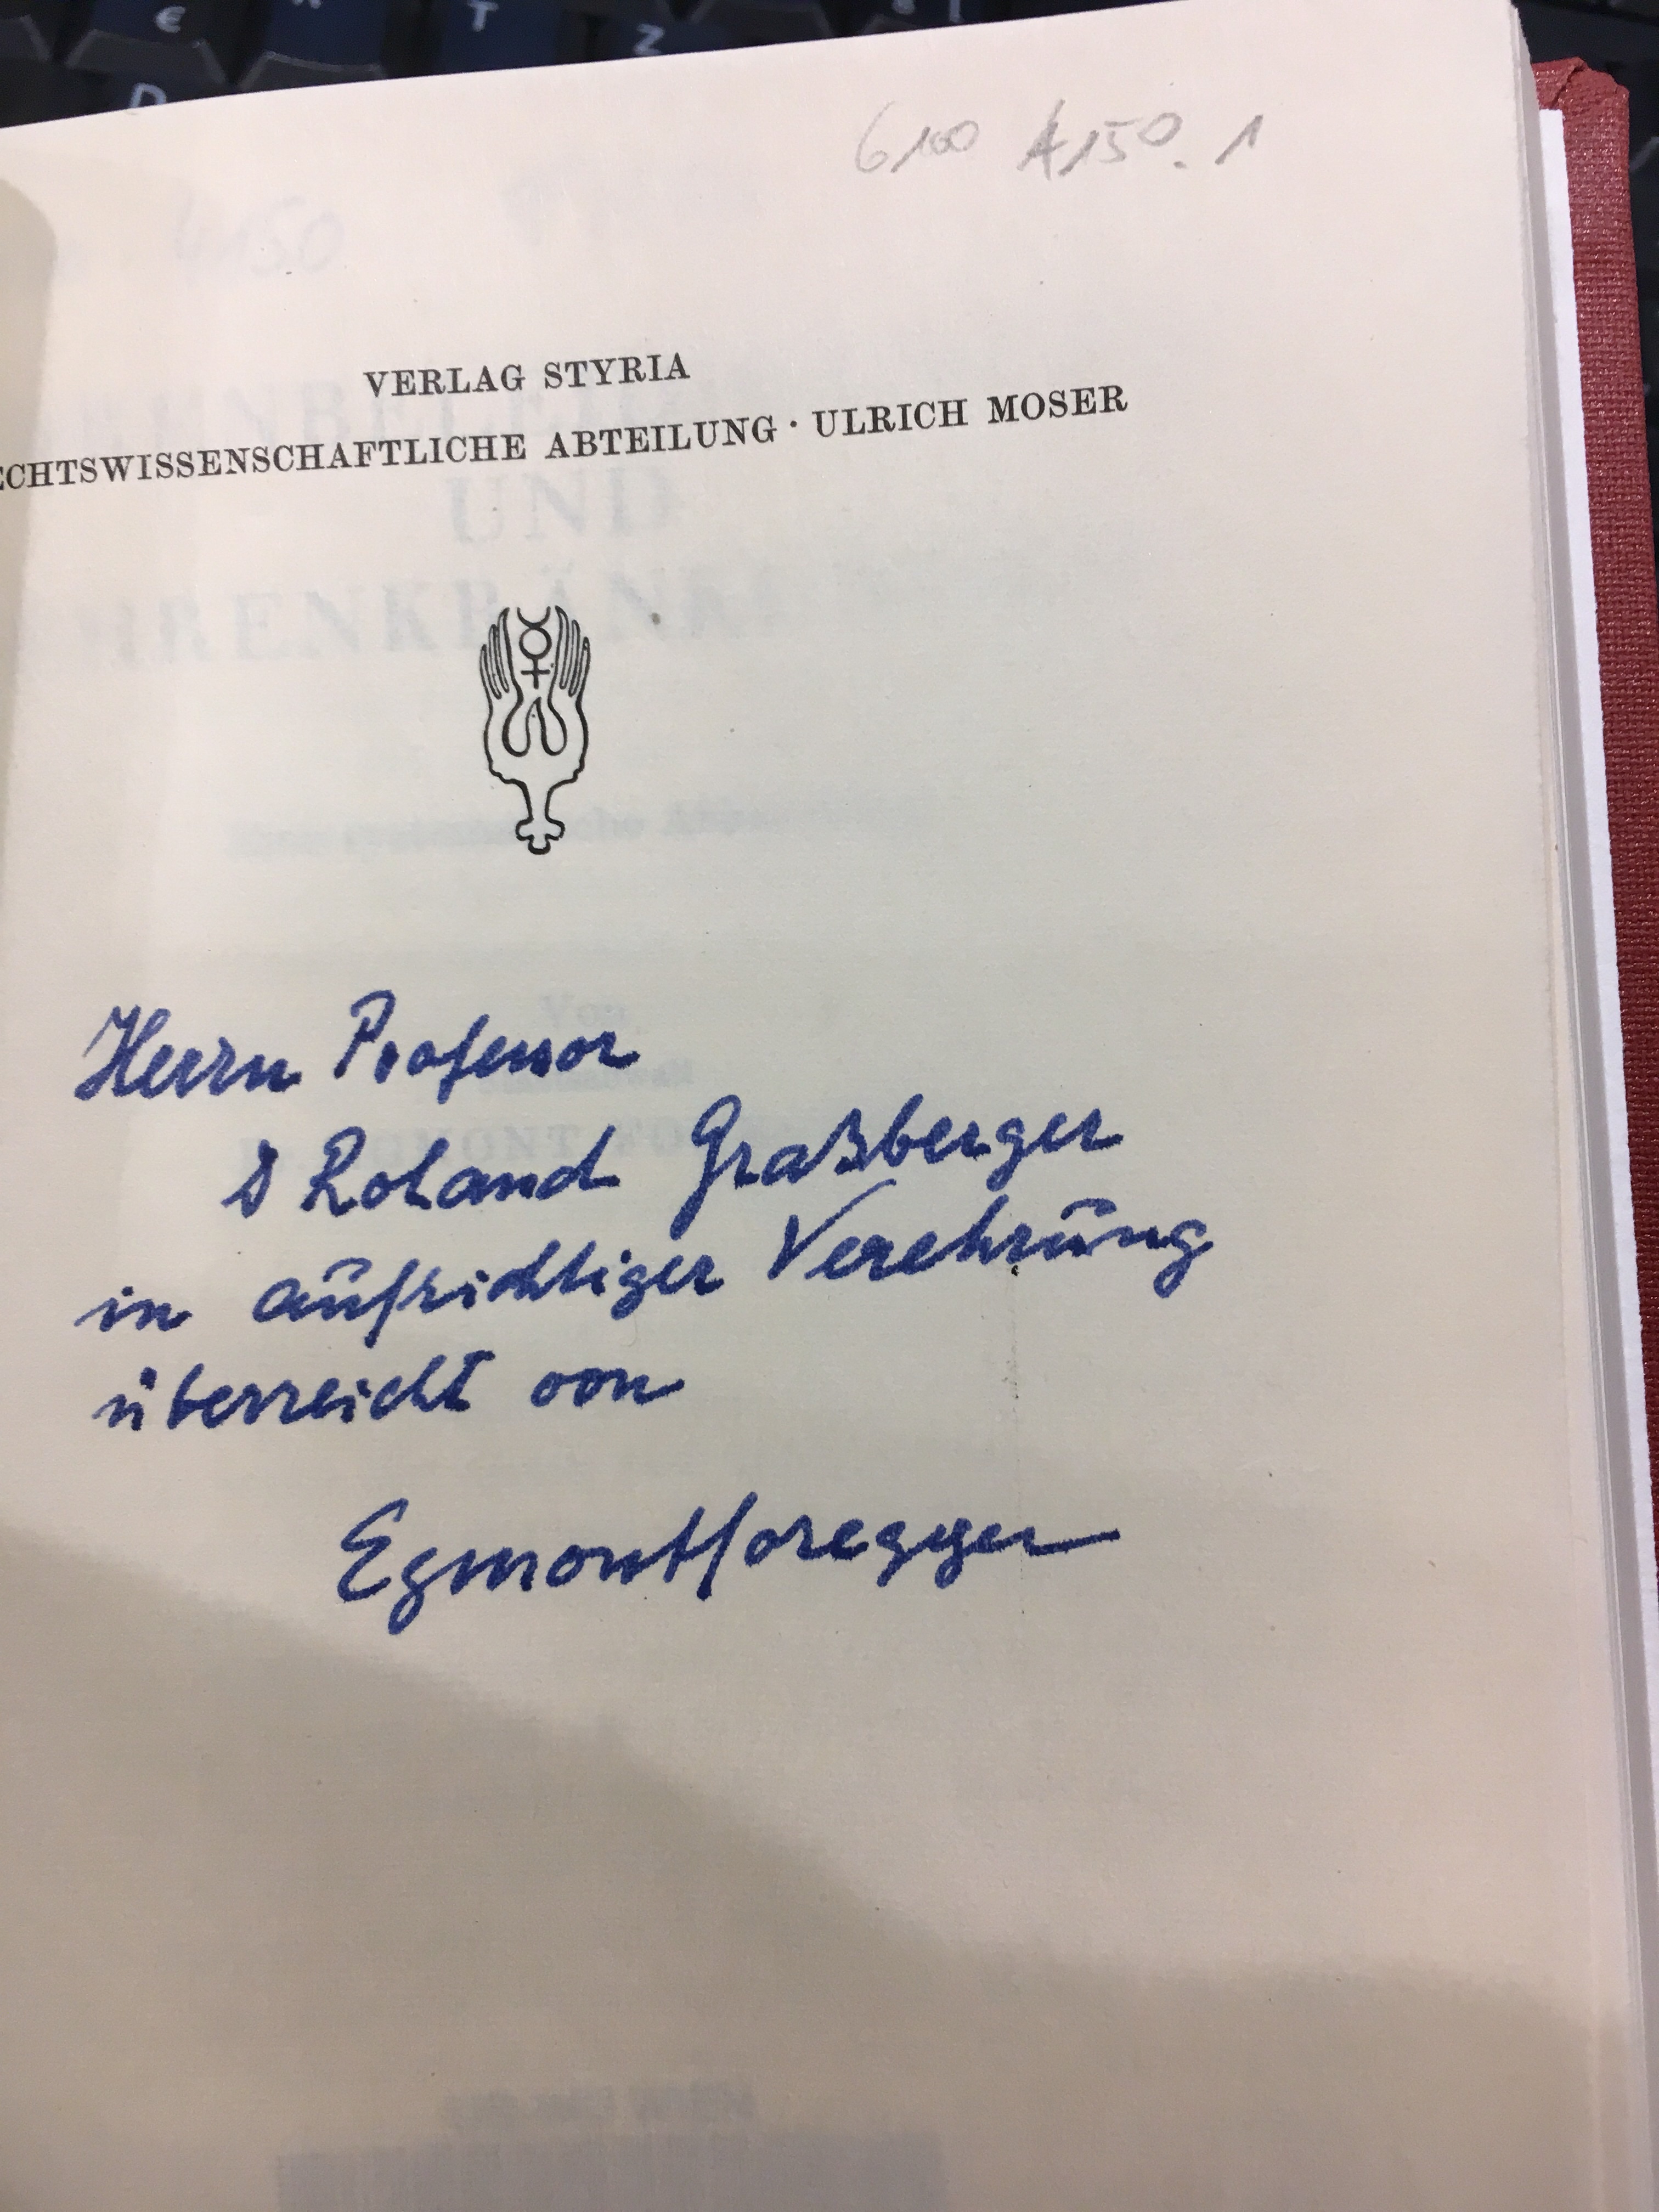 € T Z
D
6100 A150.1
4150
VERLAG STYRIA
ECHTSWISSENSCHAFTLICHE ABTEILUNG · ULRICH MOSER
UND
HRENKRÄNK
Von
Herrn Professor
D Roland Graßberger
in aufrichtiger Verehrung
überreicht von
Egmont Foregger